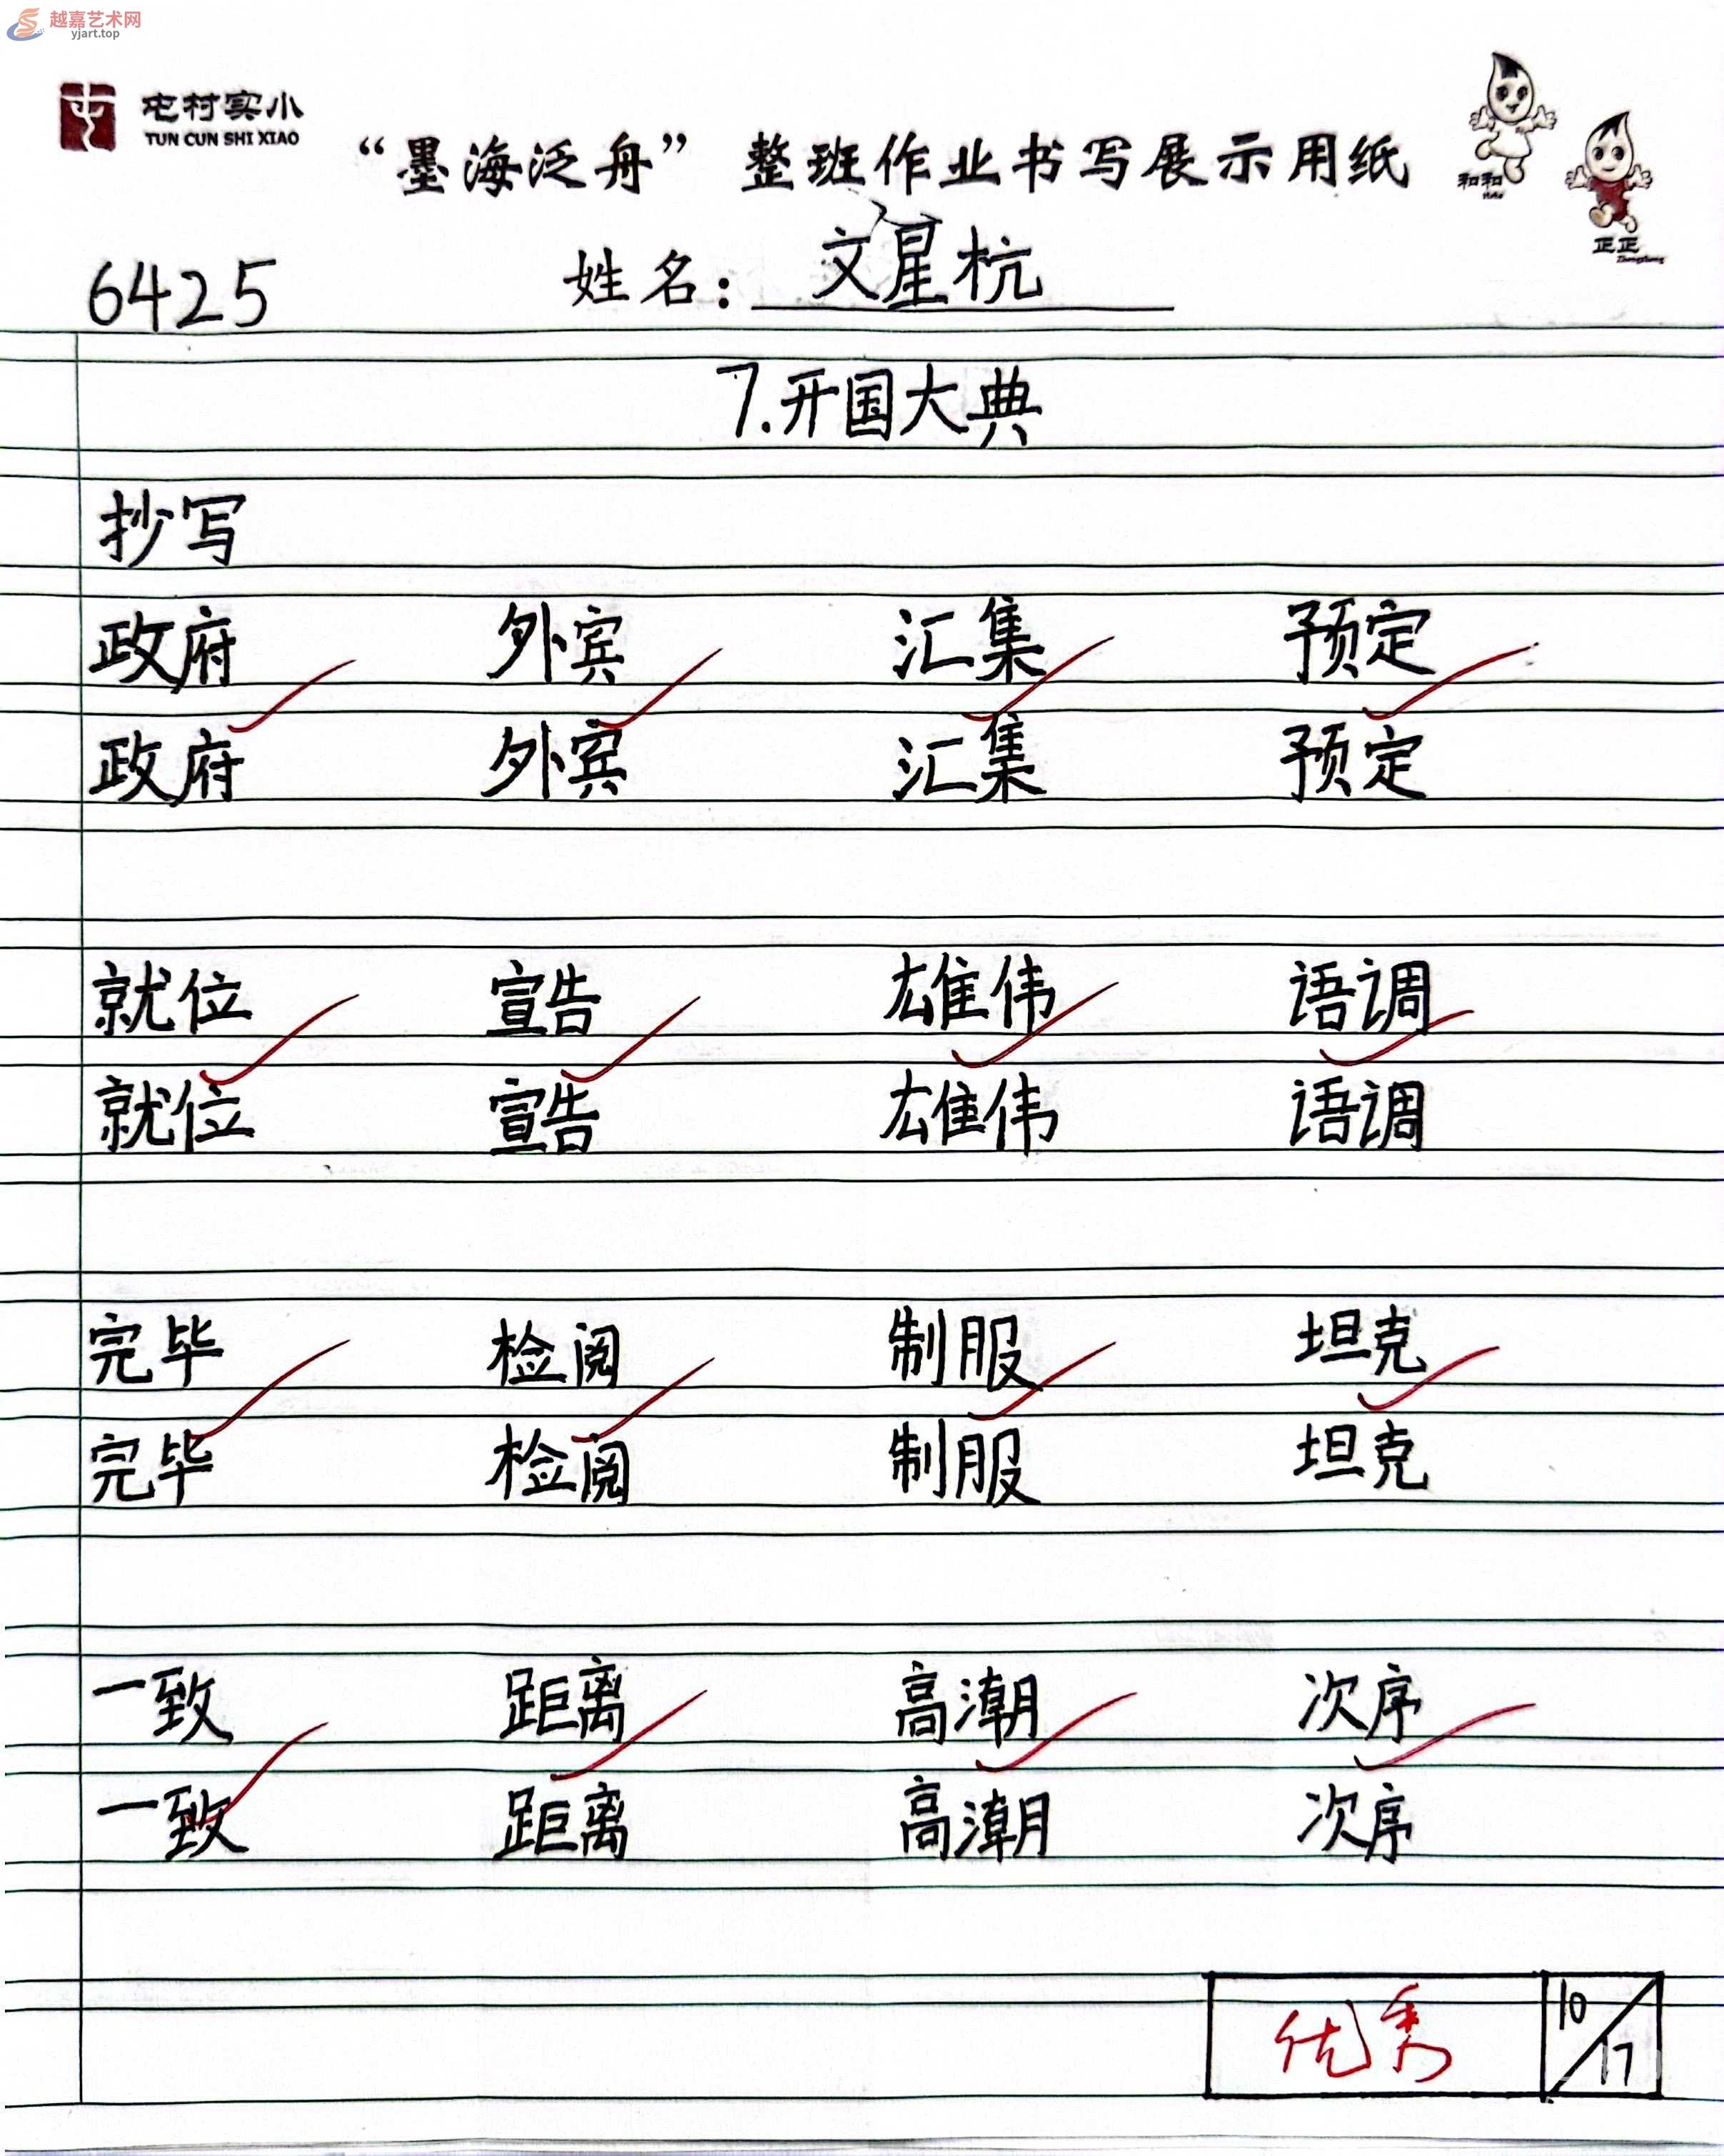 越嘉艺术网
yjart.top
屯村实小
TUN CUN SHI XIAO
“墨海泛舟” 整班作业书写展示用纸
和和
正正
6425 姓名：文星杭
7.开国大典
抄写
政府 外宾 汇集 预定
政府 外宾 汇集 预定
就位 宣告 雄伟 语调
就位 宣告 雄伟 语调
完毕 检阅 制服 坦克
完毕 检阅 制服 坦克
一致 距离 高潮 次序
一致 距离 高潮 次序
优秀 10/17